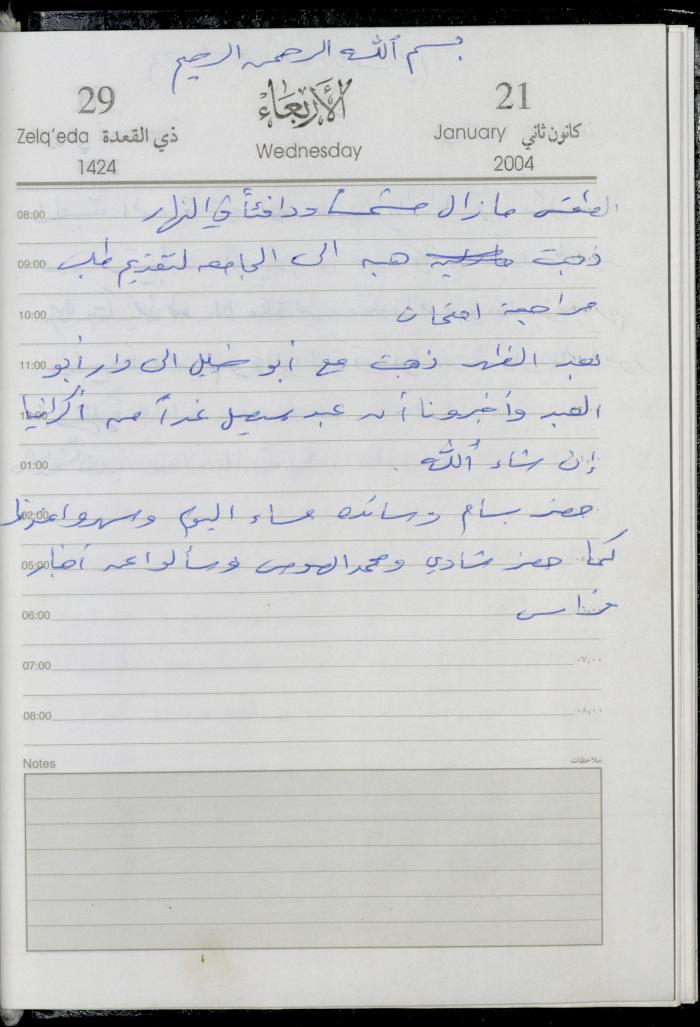 بسم الله الرحمن الرحيم
29 الأربعاء 21
Zelq'eda ذي القعدة Wednesday January كانون ثاني
1424 2004
08:00 الطقس ما زال مشمساً ودافئاً في النهار
09:00 ذهبت هبه الى الجامعه لتقديم طلب
10:00 مراجعة امتحان
11:00 بعد الظهر ذهبت مع أبو خليل الى دار أبو
العبد وأخبرونا أن عبد سيصل غداً من أكرانيا
01:00 إن شاء الله
02:00 حضر بسام وسائده مساء اليوم وسهروا عندنا
05:00 كما حضر شادي ومحمد الهوس وسألوا عن أخبار
06:00 فراس
07:00 ٠٧,٠٠
08:00 ٠٨,٠٠
Notes ملاحظات